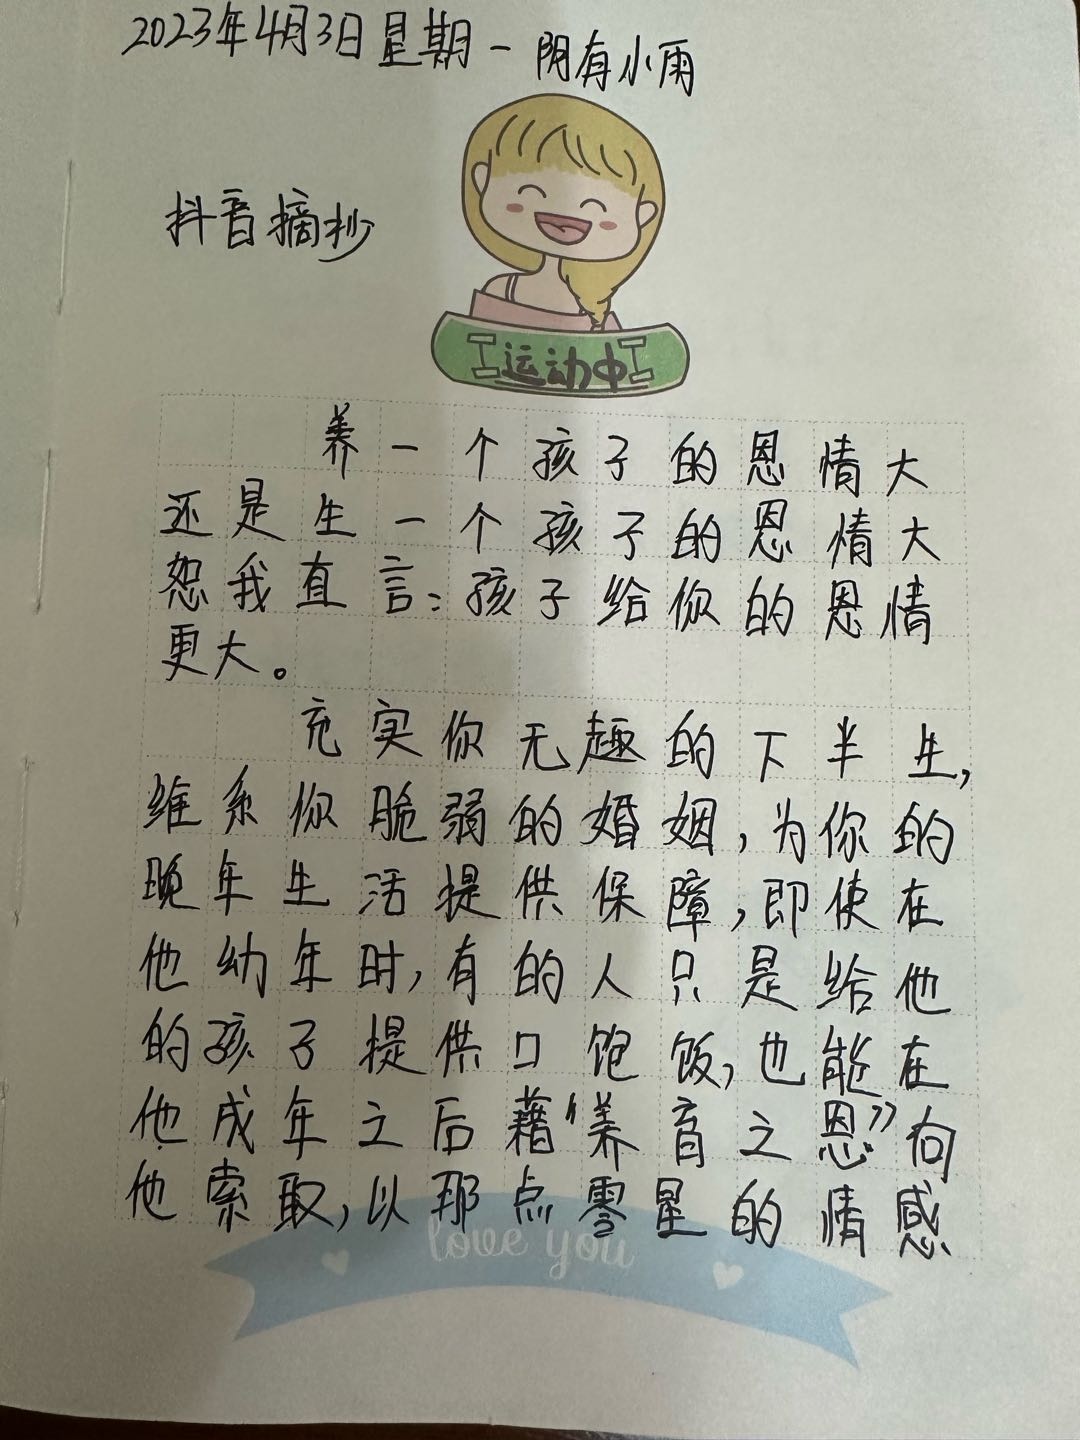 2023年4月3日星期一 阴有小雨
抖音摘抄
运动中
养一个孩子的恩情大
还是生一个孩子的恩情大
恕我直言:孩子给你的恩情
更大。
充实你无趣的下半生,
维系你脆弱的婚姻,为你的
晚年生活提供保障,即使在
他幼年时,有的人只是给他
的孩子提供口饱饭,也能在
他成年之后藉“养育之恩”向
他索取,以那点零星的情感
love you